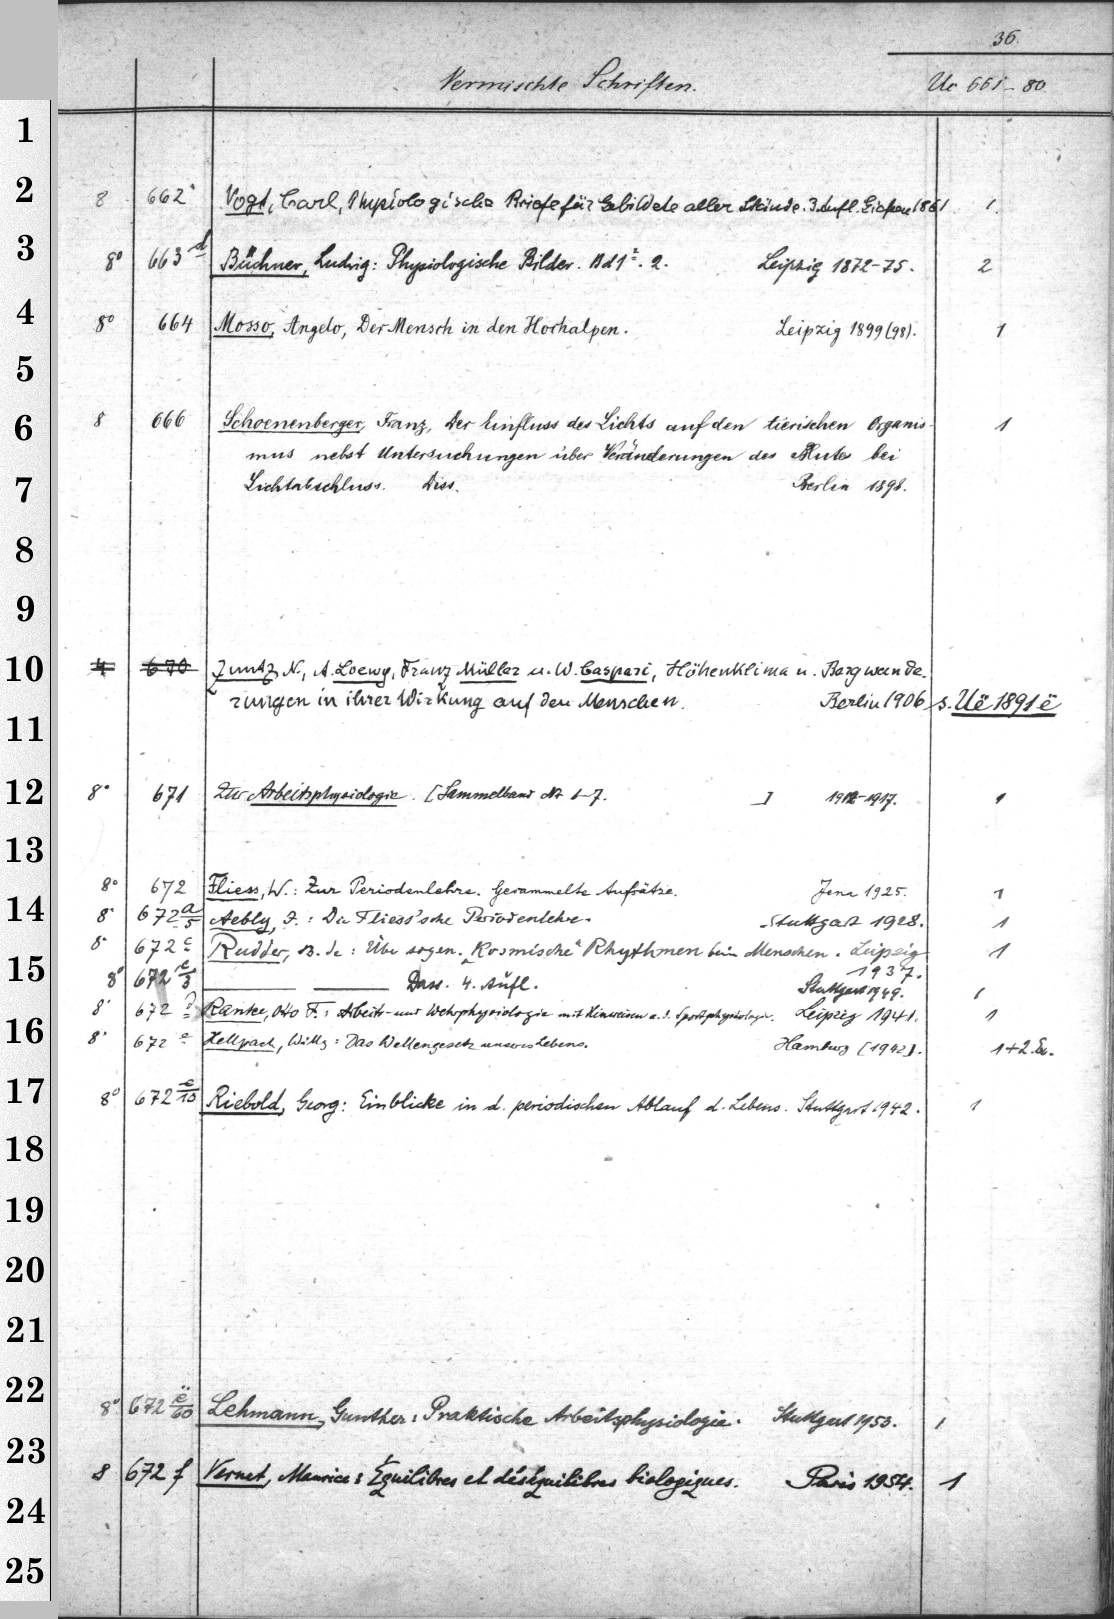 36.
Vermischte Schriften. Uc 661-80
1
2
8 662 Vogt, Carl, Physiologische Briefe für Gebildete aller Stände. 3. Aufl. Giessen 1861 1.
3
8° 663 d Büchner, Ludwig: Physiologische Bilder. Bd 1 2. 2. Leipzig 1872-75. 2
4
8° 664 Mosso, Angelo, Der Mensch in den Hochalpen. Leipzig 1899 (98). 1
5
6
8 666 Schoenenberger, Franz, Der Einfluss des Lichts auf den tierischen Organis- 1
mus nebst Untersuchungen über Veränderungen des Blutes bei
7
Lichtabschluss. Diss. Berlin 1898.
8
9
10
4 670 Zuntz, N., A. Loewy, Franz Müller u. W. Caspari, Höhenklima u. Bergwande-
rungen in ihrer Wirkung auf den Menschen. Berlin 1906 s. Uë 1891 ë
11
12
8° 671 Zur Arbeitsphysiologie. [Sammelband Nr 1-7. ] 1912-1917. 1
13
8° 672 Fliess, W.: Zur Periodenlehre. Gesammelte Aufsätze. Jena 1925. 1
14
8° 672 a/5 Aebly, J.: Die Fliess'sche Periodenlehre. Stuttgart 1928. 1
8° 672 c Rudder, B. de: Über sogen. „Kosmische“ Rhythmen beim Menschen. Leipzig 1
1937.
15
8° 672 c/3 Dass. 4. Aufl. Stuttgart 1949. 1
8° 672 d Ranke, Otto F.: Arbeits- und Wehrphysiologie mit Hinweisen a. d. Sportphysiologie. Leipzig 1941. 1
16
8° 672 e Hellpach, Willy: Das Wellengesetz unseres Lebens. Hamburg [1942]. 1+2. Ex.
17
8° 672 e/10 Riebold, Georg: Einblicke in d. periodischen Ablauf d. Lebens. Stuttgart 1942. 1
18
19
20
21
22
8° 672 ë/60 Lehmann, Gunther: Praktische Arbeitsphysiologie. Stuttgart 1953. 1
23
8 672 f Vernet, Maurice: Équilibres et déséquilibres biologiques. Paris 1954. 1
24
25